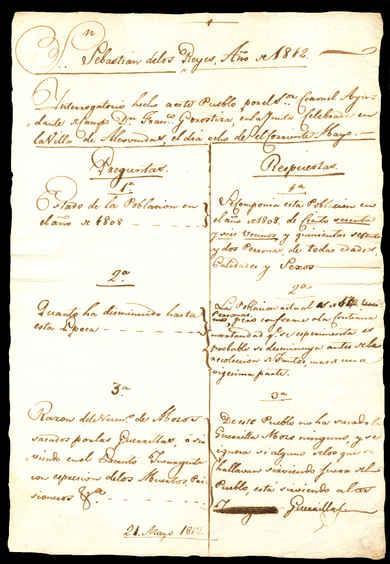 Sn. Sebastian delos Reyes, Año de 1812.
Interrogatorio hecho a este Pueblo por el Sr. Coronel Ayu-
dante de Campo Dn. Franco. Gorostiza, en la Junta Celebrada en
la Villa de Alcovendas, el dia ocho del Corriente Mayo.
Preguntas.
1a
Estado de la Poblacion en
el año de 1808
2a
Quanto ha desminuido hasta
esta Epoca
3a
Razon del Numo. de Mozos
sacados por las Guerrillas, o sir-
viendo en el Decreto
con expresion de los Muertos, Pri-
sioneros &a
21. Mayo 1812
Respuestas.
1a
Se componia esta Poblacion en
el año de 1808, de Ciento
y seis vecinos y quinientas setenta
y dos Personas de todas edades,
Calidades y Sexos
2a
La Poblacion actual es de
Personas, pero conforme a la Continua
mortandad qe. se experimenta es
probable se desminuya antes de la
recoleccion de Frutos, mas de una
vigesima parte.
3a
De este Pueblo no ha sacado la
Guerrilla Mozo ninguno, y se
ignora si alguno de los que se
hallavan sirviendo fuera del
Pueblo, està sirviendo a las
Guerrillas